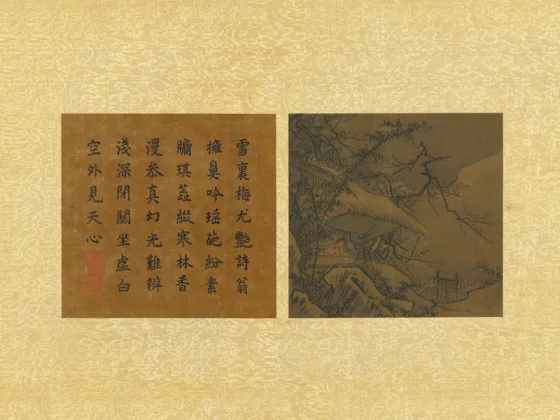 雪裏梅尤艷詩翁
擁鼻吟瑤葩紛素
牖琪蕋綴寒林香
漫叅真幻光難辨
淺深閉關坐虛白
空外見天心